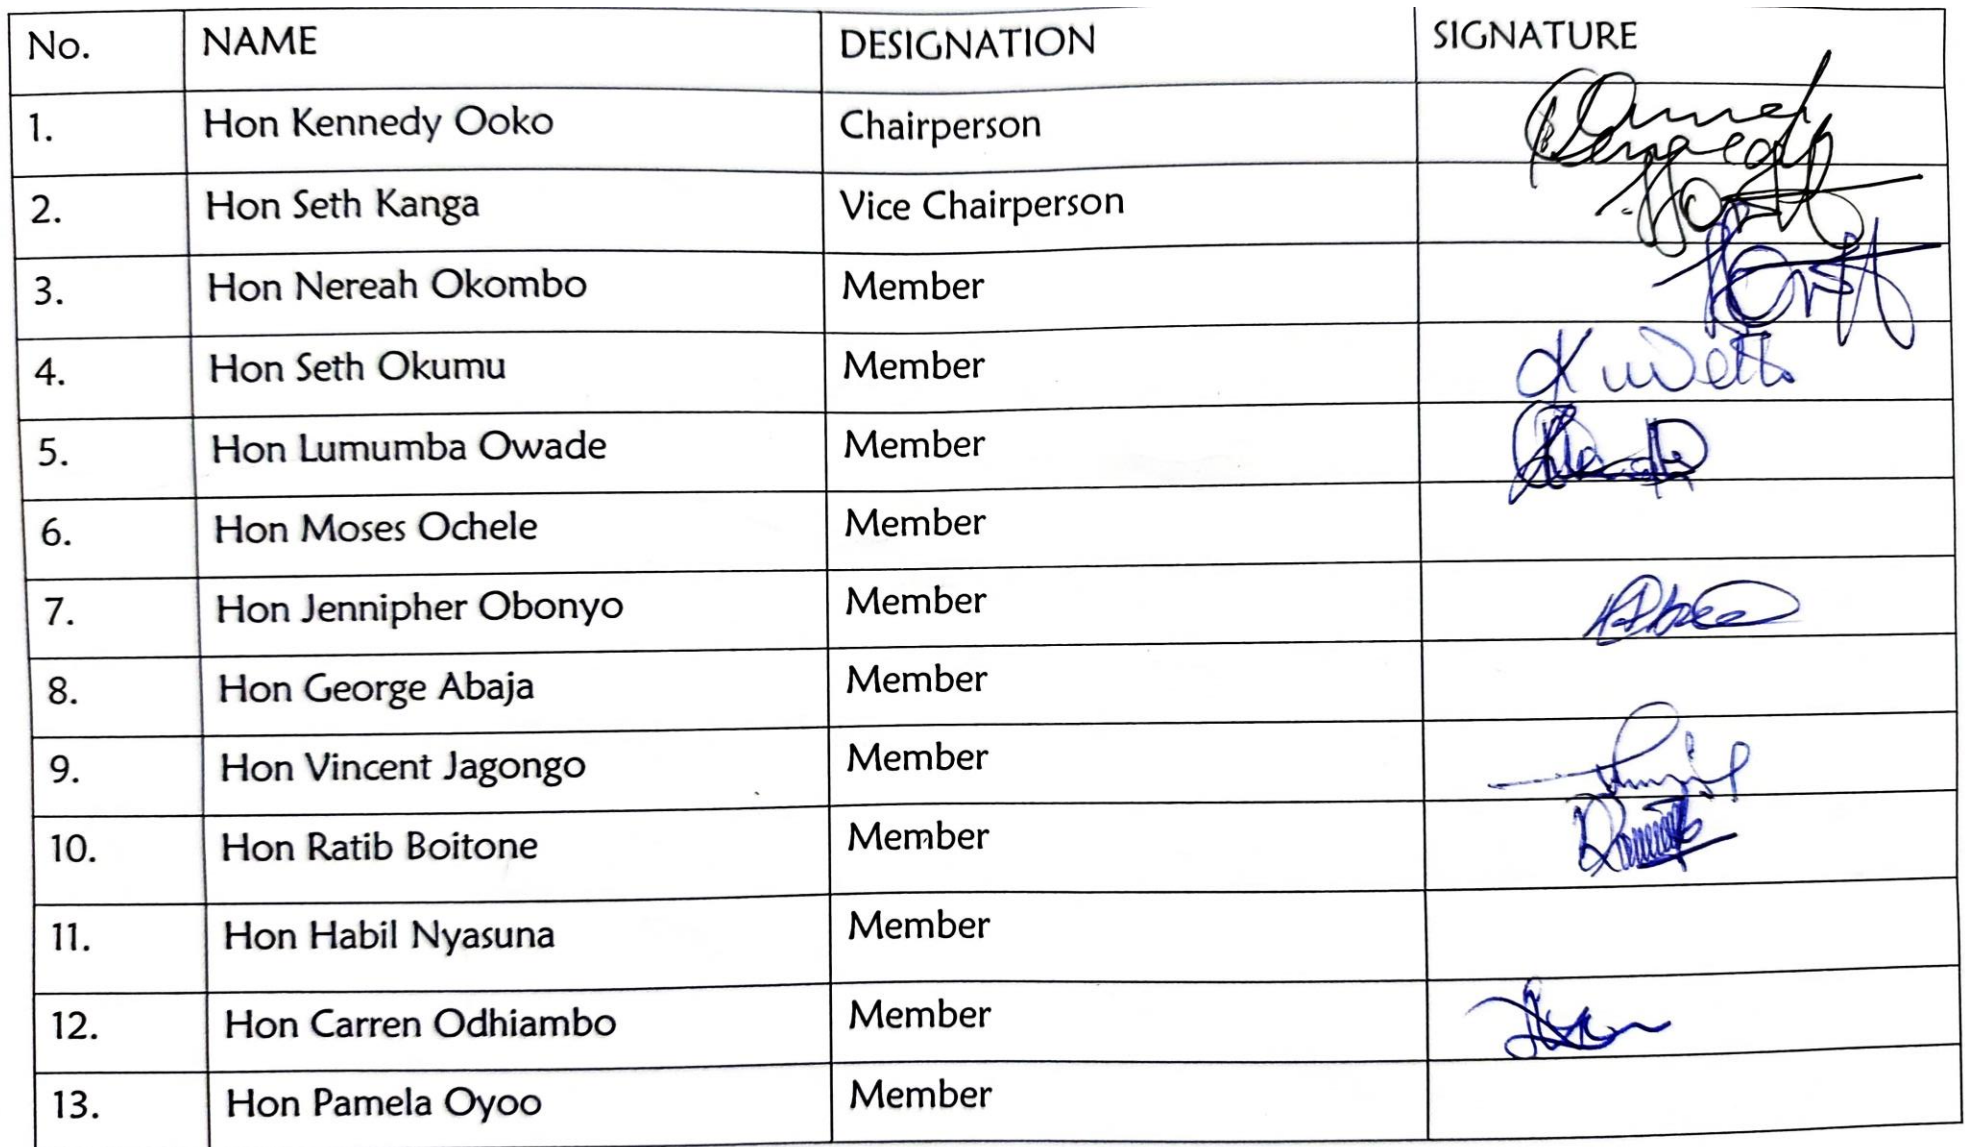 No. NAME DESIGNATION SIGNATURE
1. Hon Kennedy Ooko Chairperson
2. Hon Seth Kanga Vice Chairperson
3. Hon Nereah Okombo Member
4. Hon Seth Okumu Member
5. Hon Lumumba Owade Member
6. Hon Moses Ochele Member
7. Hon Jennipher Obonyo Member
8. Hon George Abaja Member
9. Hon Vincent Jagongo Member
10. Hon Ratib Boitone Member
11. Hon Habil Nyasuna Member
12. Hon Carren Odhiambo Member
13. Hon Pamela Oyoo Member